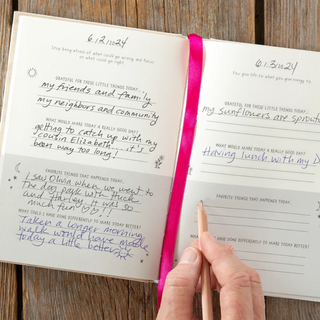 6.12.2024
Stop being afraid of what could go wrong, and focus
on what could go right.
GRATEFUL FOR THESE LITTLE THINGS TODAY...
my friends and family
my neighbors and community
WHAT WOULD MAKE TODAY A REALLY GOOD DAY?
getting to catch up with my
cousin Elizabeth... it's
been way too long!
FAVORITE THINGS THAT HAPPENED TODAY...
I saw Olivia when we went to
the dog park with Tuck
and Harley. It was so
much fun!
WHAT COULD I HAVE DONE DIFFERENTLY TO MAKE TODAY BETTER?
Taken a longer morning
walk would have made
today a little better
6.13.2024
You give life to what you give energy to.
GRATEFUL FOR THESE LITTLE THINGS TODAY...
my sunflowers are sprout
WHAT WOULD MAKE TODAY A REALLY GOOD DAY?
Having lunch with my D
FAVORITE THINGS THAT HAPPENED TODAY...
WHAT COULD I HAVE DONE DIFFERENTLY TO MAKE TODAY BETTER?